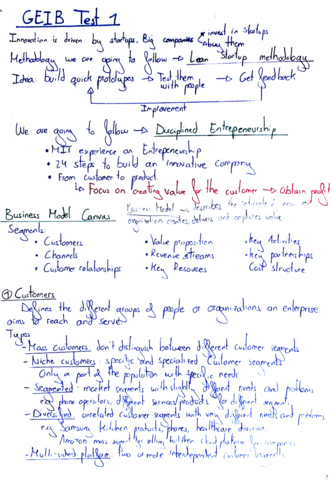 GEIB Test 1
Innovation is driven by startups. Big companies invest in startups
buy them
Methodology we are going to follow → Lean Startup methodology
Idea: build quick prototypes → Test them with people → Get feedback
Improvement
We are going to follow → Disciplined Entrepeneurship
• MIT experience on Entrepeneurship
• 24 steps to build an innovative company
• From customer to product.
↳ Focus on creating Value for the customer → Obtain profit
Business Model Canvas
Business Model → describes the rationale of how an
organization creates, delivers and captures value
Segments:
• Customers • Value proposition • Key Activities
• Channels • Revenue streams • Key partnerships
• Customer relationships • Key Resources Cost structure
① Customers
Defines the different groups of people or organizations an enterprise
aims to reach and serve
Types
- Mass customers: don't distinguish between different customer segments
- Niche customers: specific and specialized Customer segments
Only a part of the population with specific needs
- Segmented: market segments with slightly different needs and problems
e.g. phone operators, different services/products for different segments
- Diversified: unrelated customer segments with very different needs and problems
e.g. Samsung kitchen products, phones, healthcare division
Amazon mass market selling kitchen cloud platform for companies
- Multi-sided platform: two or more interdependent customer segments